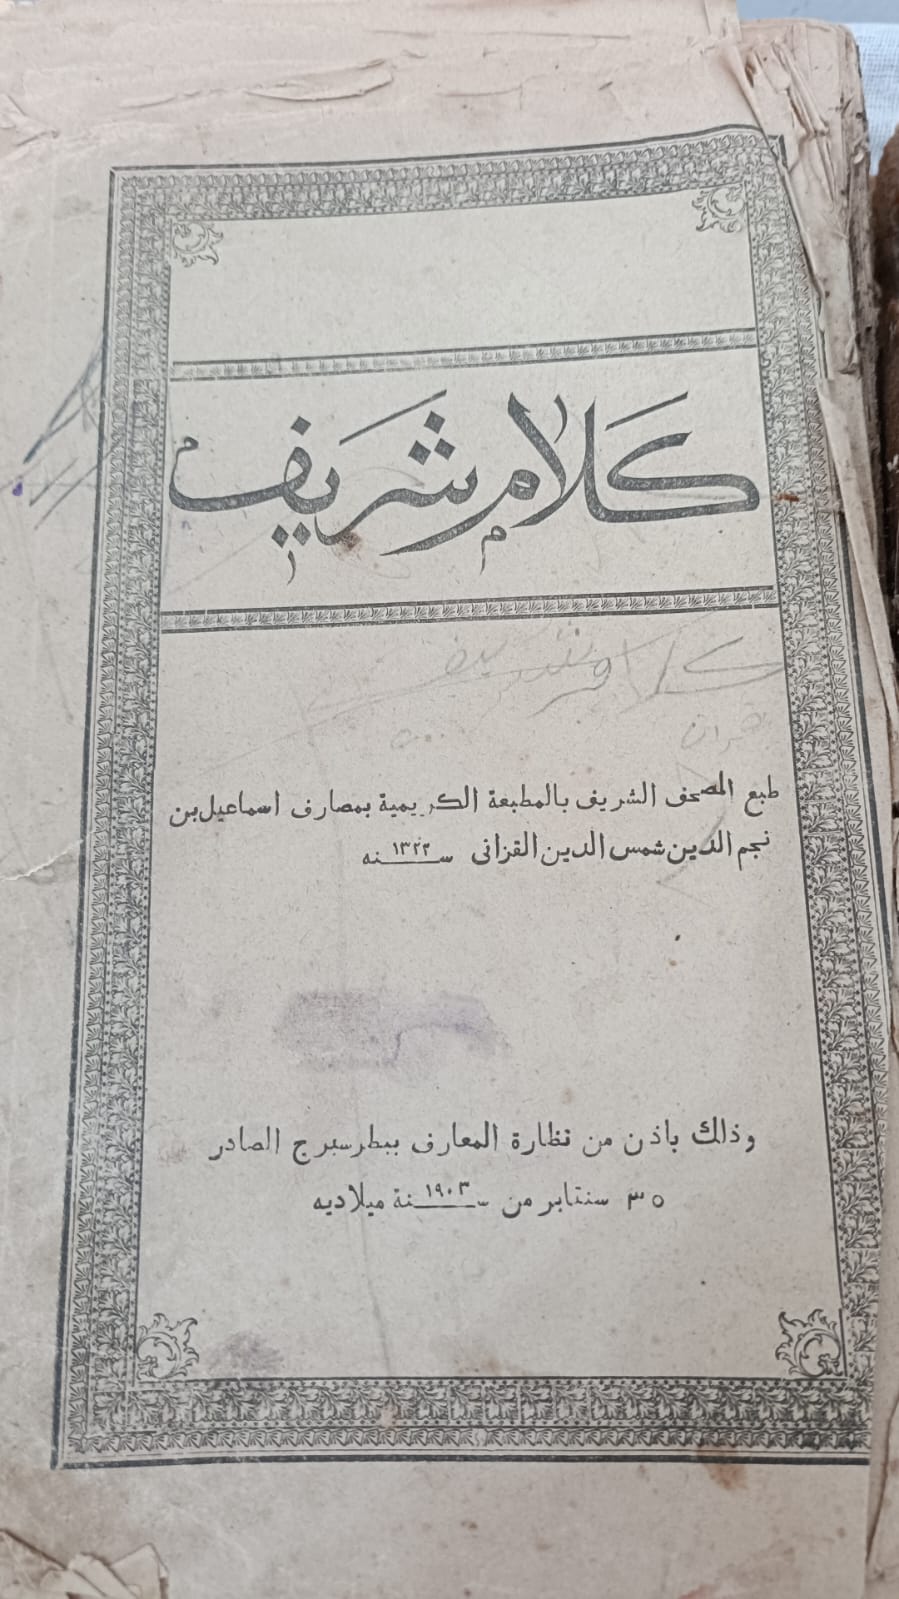 كلام شريف
كلام شريف
قران
طبع المصحف الشريف بالمطبعة الكريمية بمصارف اسماعيل بن
نجم الدين شمس الدين القزانى سنه ١٣٢٢
وذلك باذن من نظارة المعارف ببطرسبرج الصادر
٣٥ سنتابر من سنة ١٩٠٣ ميلاديه